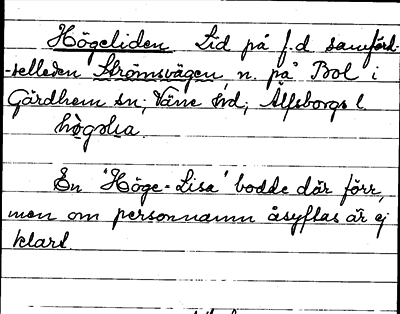 Högeliden Lid på f.d. samfärd-
-selleden Strömsvägen, n. på Bol i
Gärdhem sn; Väne hd; Älfsborgs l.
En "Höge-Lisa" bodde där förr,
men om personnamn åsyftas är ej
klart.